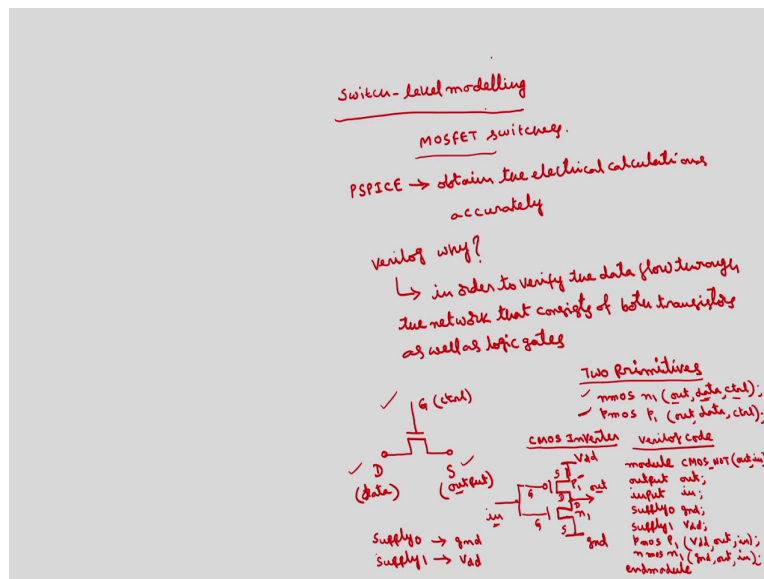 Switch-level modelling
MOSFET switches.
PSPICE → obtain the electrical calculations
accurately
Verilog why?
↳ in order to verify the data flow through
the network that consists of both transistors
as well as logic gates
Two Primitives
✓ nmos n1 (out, data, ctrl);
✓ pmos p1 (out, data, ctrl);
✓ G (ctrl)
✓ D
(data)
S ✓
(output)
supply0 → gnd
supply1 → Vdd
CMOS Inverter
Vdd
S
G
P1
D
out
in
D
G
n1
S
gnd
Verilog code
module CMOS_NOT(out,in)
output out;
input in;
supply0 gnd;
supply1 Vdd;
pmos P1 (Vdd, out, in);
nmos n1 (gnd, out, in);
endmodule